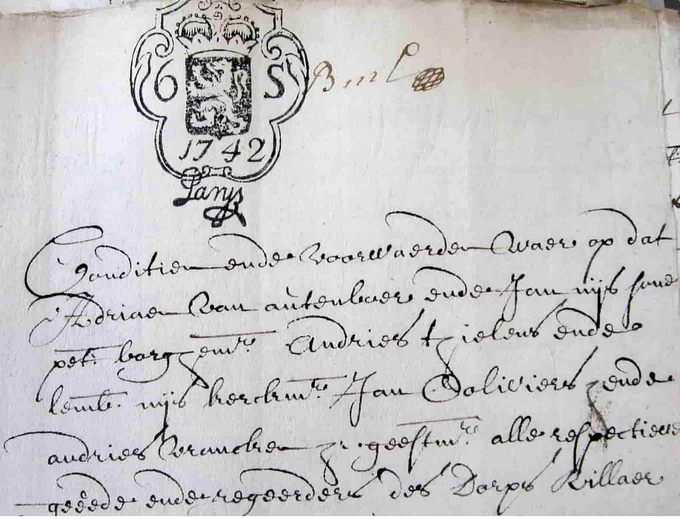 6 S
1742
Lanys
Conditien ende voorwaerden waer op dat
Adriaen van autenboer ende Jan nijs sone
pet: borgemrs Andries tzielens ende
lemb: nijs kerckmrs Jan Soliviers ende
andries vrancken geestmrs alle respectieve
geëede ende regeerders des Dorps Rillaer